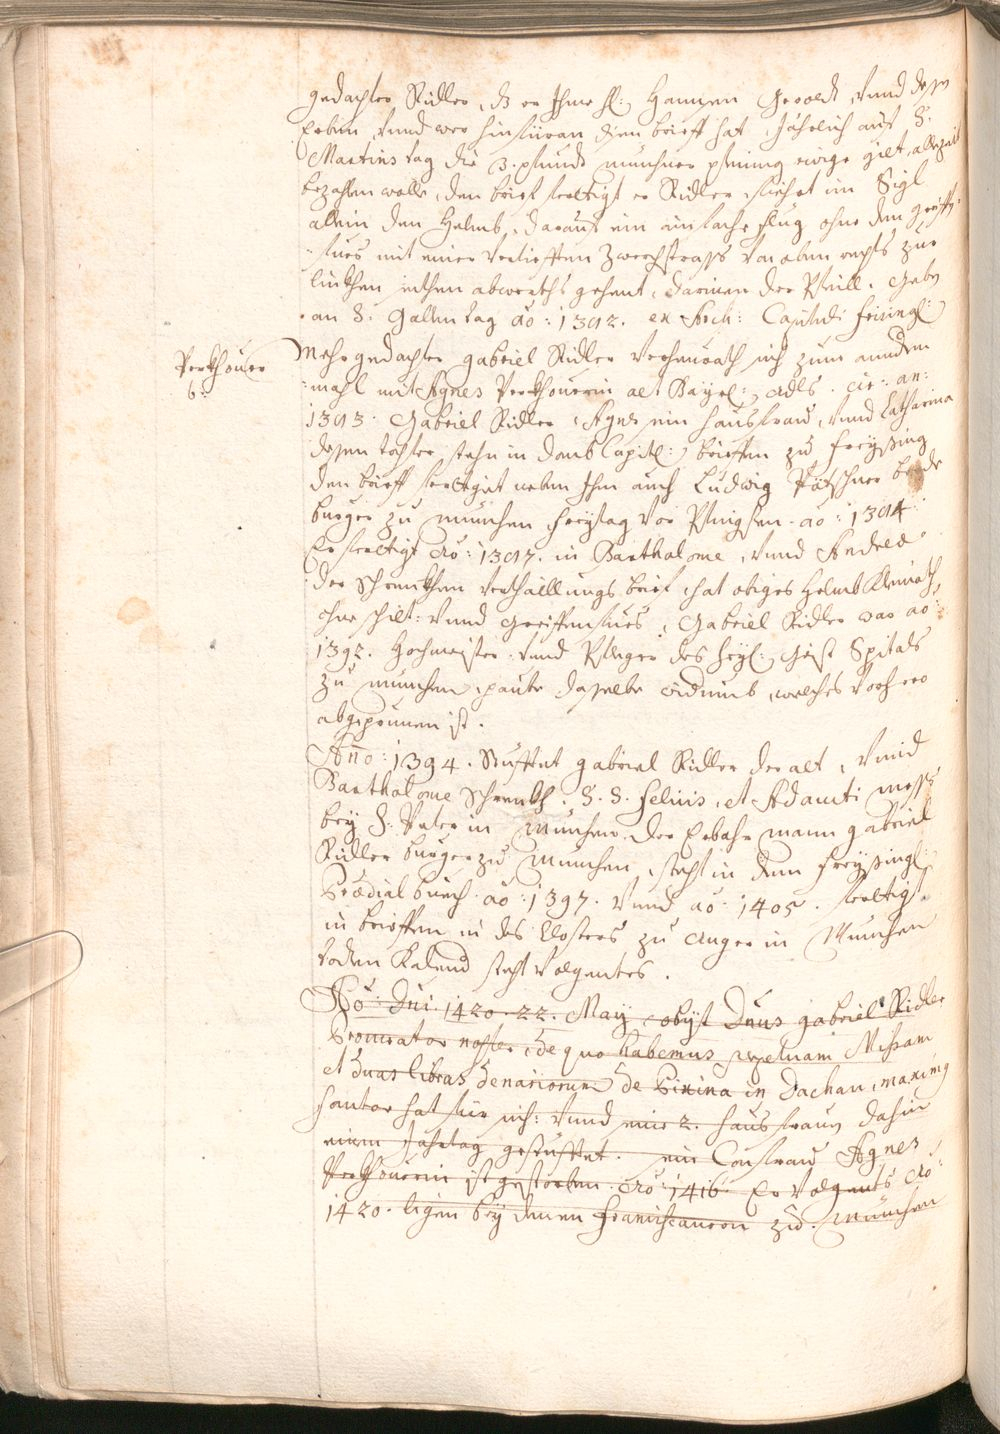 gedachter Ridler, dz er Ihme H: Hannsen Geroldt, vnnd dessen
Erben, vnnd wer hinfüran disen brieff hat, Jährlich auf S.
Martins tag die 3. pfundt münchner pfening ewige gilt allezeit
bezahlen wolle, den brief fertigt er Ridler, fiehrt im Sigl
allein den Helmb, darauf ein einfacher flug ohne den greiffen
fues mit einer vertiefften Zwerchstrass von oben rechts zur
linkhen seithen abwerths gehent, darinen der Pfeill. Geben
an S. Gallen tag ao: 1392. ex Arch: Capituli frising:
Perkhover
6:
Mehrgedachter gabriel Ridler verheurath sich zum anndern
mahl mit Agnes Perkhoverin alt Bayrl: Adls. cir: an:
1393. Gabriel Ridler, Agnes sein hausfraw, vnnd Catharina
dessen tochter stehn in domb Capitl: brieffen zu Freyssing
den brieff fertiget neben Ihm auch Ludwig Pötschner beede
burger zu münchen, freytag vor Pfingsten. ao: 1394.
Er fertigt Ao: 1397. in Bartholome, vnnd Andreæ
der Schrenkhen verthaillungs brief, hat obiges Helmb Kleinoth,
ohne schilt: vnnd greiffenfues, Gabriel Ridler war ao:
1392. Hochmeister vnnd Pfleger des heyl: Geist Spitals
zu münchen, paute dasselbe widumb, welches vorhero
abgeprunnen ist.
Anno: 1394. Stufftet gabriel Ridler der alt, vnnd
Bartholome Schrenkh. S. S. Felicis, et Adaucti mess
bey S. Peter in München. der Erbahr mann gabriel
Ridler burger zu München, steht in dem Freyssingl:
Prædial buech ao: 1397. vnnd ao: 1405. fertigt
in brieffen in des Closters zu Anger in München
todten Kalend steht volgentes.
Ao: Dni 1420. 22. May obyt Dnus gabriel Ridler
Procurator noster, de quo habemus perpetuam Missam
et duas libras denariorum de Piscina in Dachau, maximg
hantor hat für sich: vnnd seine 2. hausfrauen dahin
einen Jahrtag gestufftet. sein Confraw Agnes
Perkhoverin ist gestorben. Ao: 1416 Er volgents Ao:
1420. ligen bey denen Franciscanern zu München